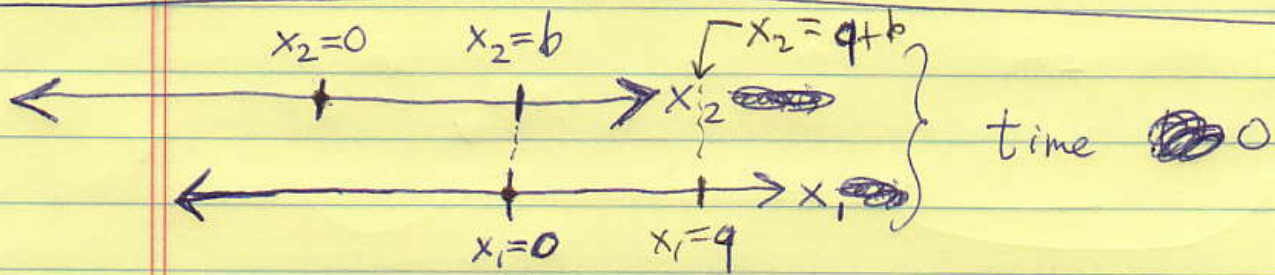 x₂=0 x₂=b x₂=q+b
x₂
time 0
x₁
x₁=0 x₁=q